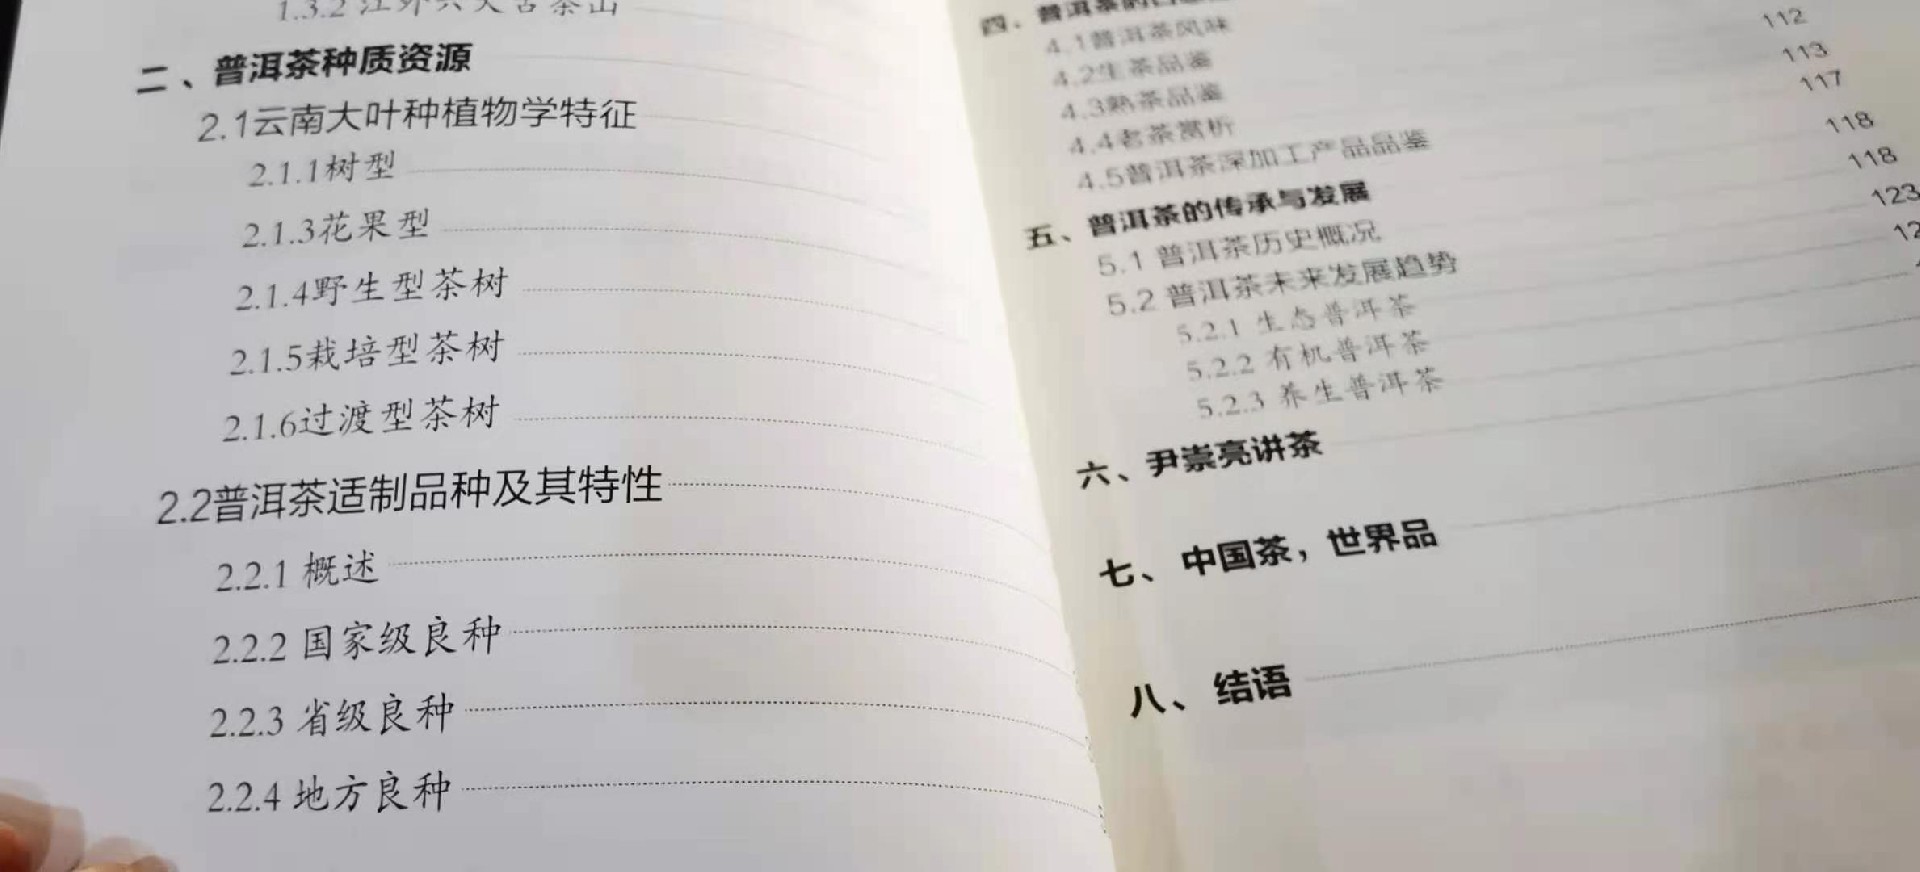 1.3.2
二、普洱茶种质资源
2.1云南大叶种植物学特征
2.1.1树型
2.1.3花果型
2.1.4野生型茶树
2.1.5栽培型茶树
2.1.6过渡型茶树
2.2普洱茶适制品种及其特性
2.2.1 概述
2.2.2 国家级良种
2.2.3 省级良种
2.2.4 地方良种
四、普洱茶的
4.1普洱茶风味
4.2生茶品鉴
4.3熟茶品鉴
4.4老茶赏析
4.5普洱茶深加工产品品鉴
五、普洱茶的传承与发展
5.1 普洱茶历史概况
5.2 普洱茶未来发展趋势
5.2.1 生态普洱茶
5.2.2 有机普洱茶
5.2.3 养生普洱茶
六、尹崇亮讲茶
七、中国茶，世界品
八、结语
112
113
117
118
118
123